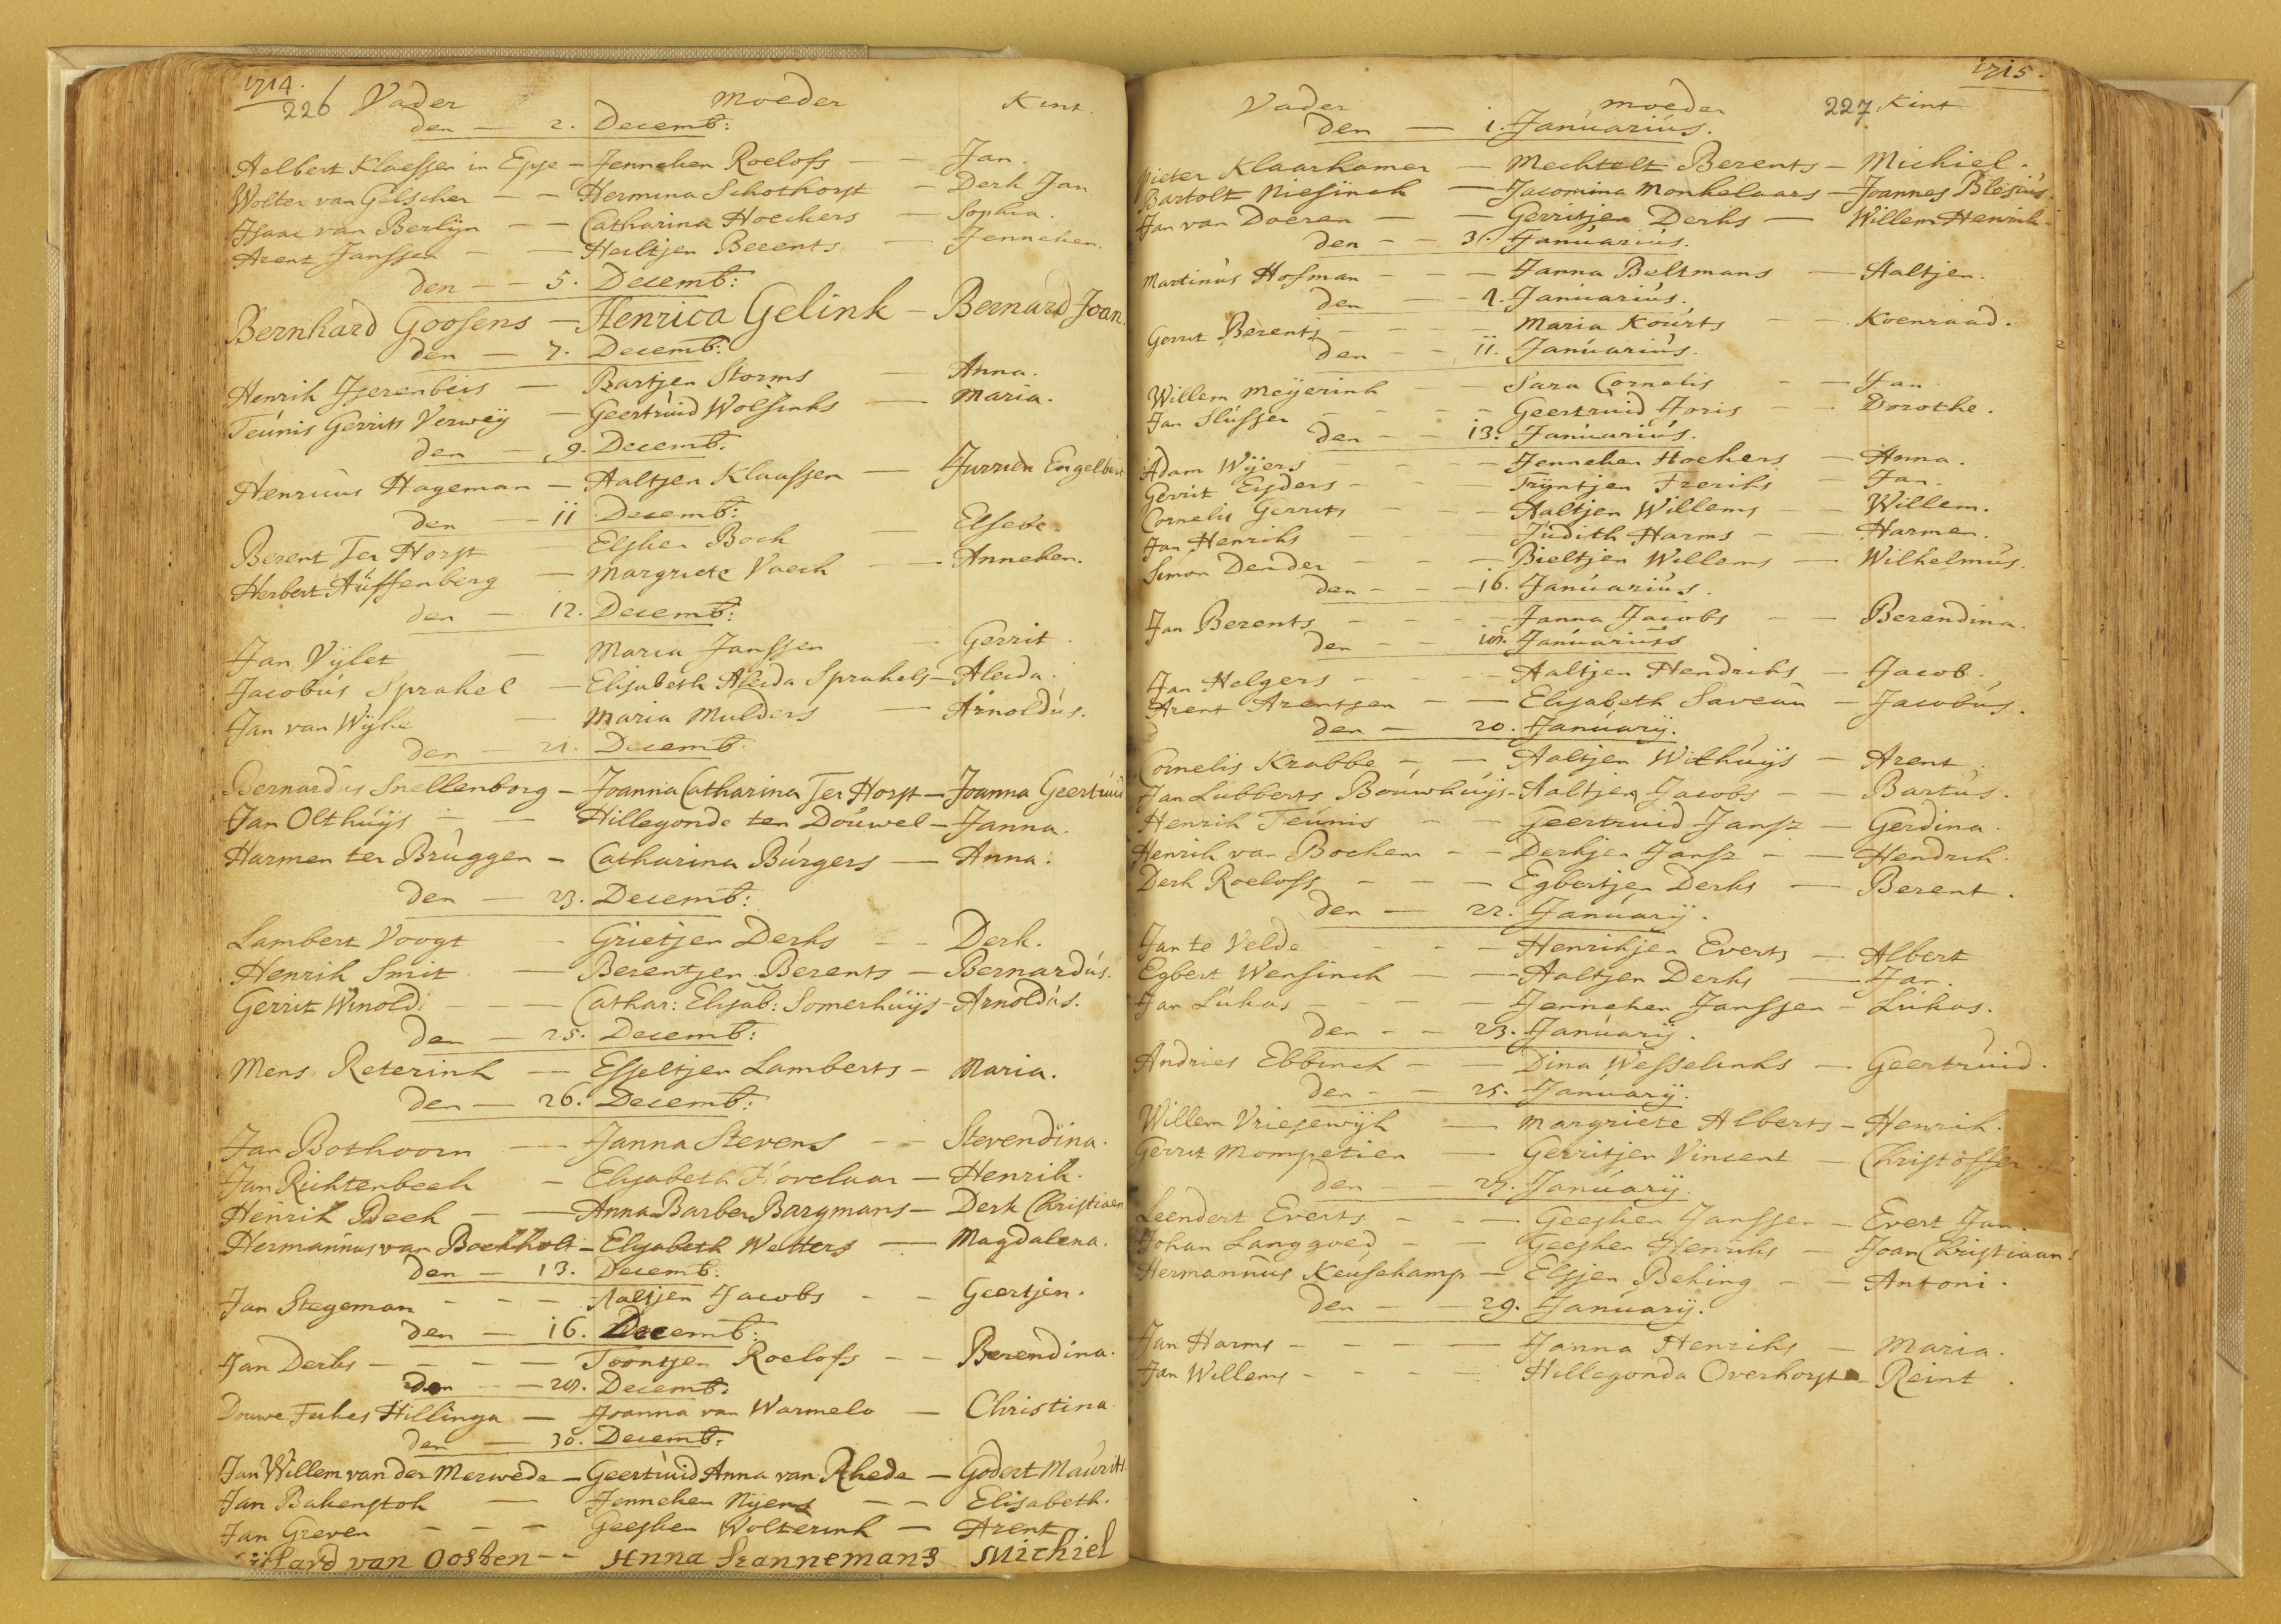 1714.
226 Vader Moeder Kint.
den — 2. Decemb:
Helbert Klaessen in Epse — Jenneken Roelofs — — Jan.
Wolter van Gelscher — — Hermina Schothorst — Derk Jan
Isaac van Berlijn — — Catharina Hoeckers — Sophia.
Arent Janssen — — Heiltjen Berents — Jenneken.
den — — 5. Decemb:
Bernhard Goosens — Henrica Gelink — Bernard Joan.
den — 7. Decemb:
Henrik Iserenbeis — Bartjen Storms — Anna.
Teunis Gerrits Verweij — Geertruid Wolsinks — Maria.
den — 9. Decemb:
Henricus Hageman — Aaltjen Klaassen — Jurrien Engelbert
den — 11 Decemb:
Berent Ter Horst — Elsken Bock — Elsebe.
Herbert Auffenberg — Margriete Vaeck — Anneken.
den — 12. Decemb:
Jan Vijlet — Maria Janssen — Gerrit.
Jacobus Sprakel — Elisabeth Aleida Sprakels — Aleida.
Jan van Wijhe — Maria Mulders — Arnoldus.
den — 21. Decemb:
Bernardus Snellenborg — Joanna Catharina Ter Horst — Joanna Geertruid
Jan Olthuijs — — Hillegonde ten Douwel — Janna.
Harmen ter Bruggen — Catharina Burgers — Anna.
den — 23. Decemb:
Lambert Voogt — Grietjen Derks — — Derk.
Henrik Smit — Berentjen Berents — Bernardus.
Gerrit Winold — — Cathar: Elisab: Somerhuijs — Arnoldus.
den — 25. Decemb:
Mens Reterink — Esseltjen Lamberts — Maria.
den — 26. Decemb:
Jan Bothoorn — Janna Stevens — — Stevendina.
Jan Richterbeek — Elisabeth Hovelaar — Henrik.
Henrik Beek — — Anna Barber Bargmans — Derk Christiaen
Hermannus van Bockholt — Elisabeth Wetters — Magdalena.
den — 13. Decemb:
Jan Stegeman — — — Aaltjen Jacobs — — Geertjen.
den — 16. Decemb:
Jan Derks — — — — Toontjen Roelofs — — Berendina.
den — — 28. Decemb:
Douwe Feikes Hillinga — Joanna van Warmelo — Christina
den — 30. Decemb:
Jan Willem van der Merwede — Geertruid Anna van Rhede — Godert Maurits.
Jan Bakenstok — Jenneken Nijens — — Elisabeth.
Jan Greven — — — Geesken Wolterink — Arent
van Oosten — — Anna Mannemans Michiel
1715.
Vader moeder 227 Kint
den — 1. Januarius.
Pieter Klaarkamer — Mechtelt Berents — Michiel.
Bartolt Niesinck — Jacomina Monkelaars — Joannes Blesius.
Jan van Doeren — — Gerritjen Derks — Willem Henrik
den — — 3. Januarius.
Martinus Hofman — — — Janna Beltmans — Aaltjen.
den — — 9. Januarius.
Gerrit Berents — — — — Maria Kourts — — Koenraad.
den — — 11. Januarius.
Willem Meijerink — — Sara Cornelis — — Jan
Jan Slussen — — — Geertruid Joris — — Dorothe.
den — — 13. Januarius.
Adam Wijers — — — Jenneken Hoekers — Anna.
Gerrit Eijders — — — Trijntjen Freriks — Jan.
Cornelis Gerrits — — — Aaltjen Willems — — Willem.
Jan Henriks — — — Judith Harms — — Harmen.
Simon Dender — — — Bieltjen Willems — Wilhelmus.
den — — — 16. Januarius.
Jan Berents — — — — Janna Jacobs — — Berendina.
den — — 18. Januarius
Jan Helgers — — — Aaltjen Hendriks — Jacob.
Arent Arentsen — — Elisabeth Saveun — Jacobus.
den — 20. Januarij.
Cornelis Krabbe — — Aaltjen Withuijs — Arent.
Jan Lubberts Bouwhuijs — Aaltjen Jacobs — — Bartus.
Henrik Teunis — — Geertruid Jansz — Gerdina.
Henrik van Bochem — — Derkjen Jansz — — Hendrik.
Derk Roelofs — — — Egbertjen Derks — Berent.
den — 22. Januarij.
Jan te Velde — — — Henrikjen Everts — Albert
Egbert Wensinck — — Aaltjen Derks — Jan.
Jan Lukas — — — — Jenneken Janssen — Lukas.
den — — 23. Januarij.
Andries Ebbinck — — Dina Wesselinks — Geertruid.
den — — 25. Januarij.
Willem Vriesewijk — Margriete Alberts — Henrik.
Gerrit Mompetier — Gerritjen Vincent — Christoffer
den — — 27. Januarij.
Leendert Everts — — — Geesken Janssen — Evert Jan.
Johan Langgoed — — Geesken Henriks — Joan Christiaan.
Hermannus Keusekamp — Elsjen Beking — — Antoni.
den — — 29. Januarij.
Jan Harms — — — — Janna Henriks — Maria.
Jan Willems — — — — Hillegonda Overhorst — Reint.